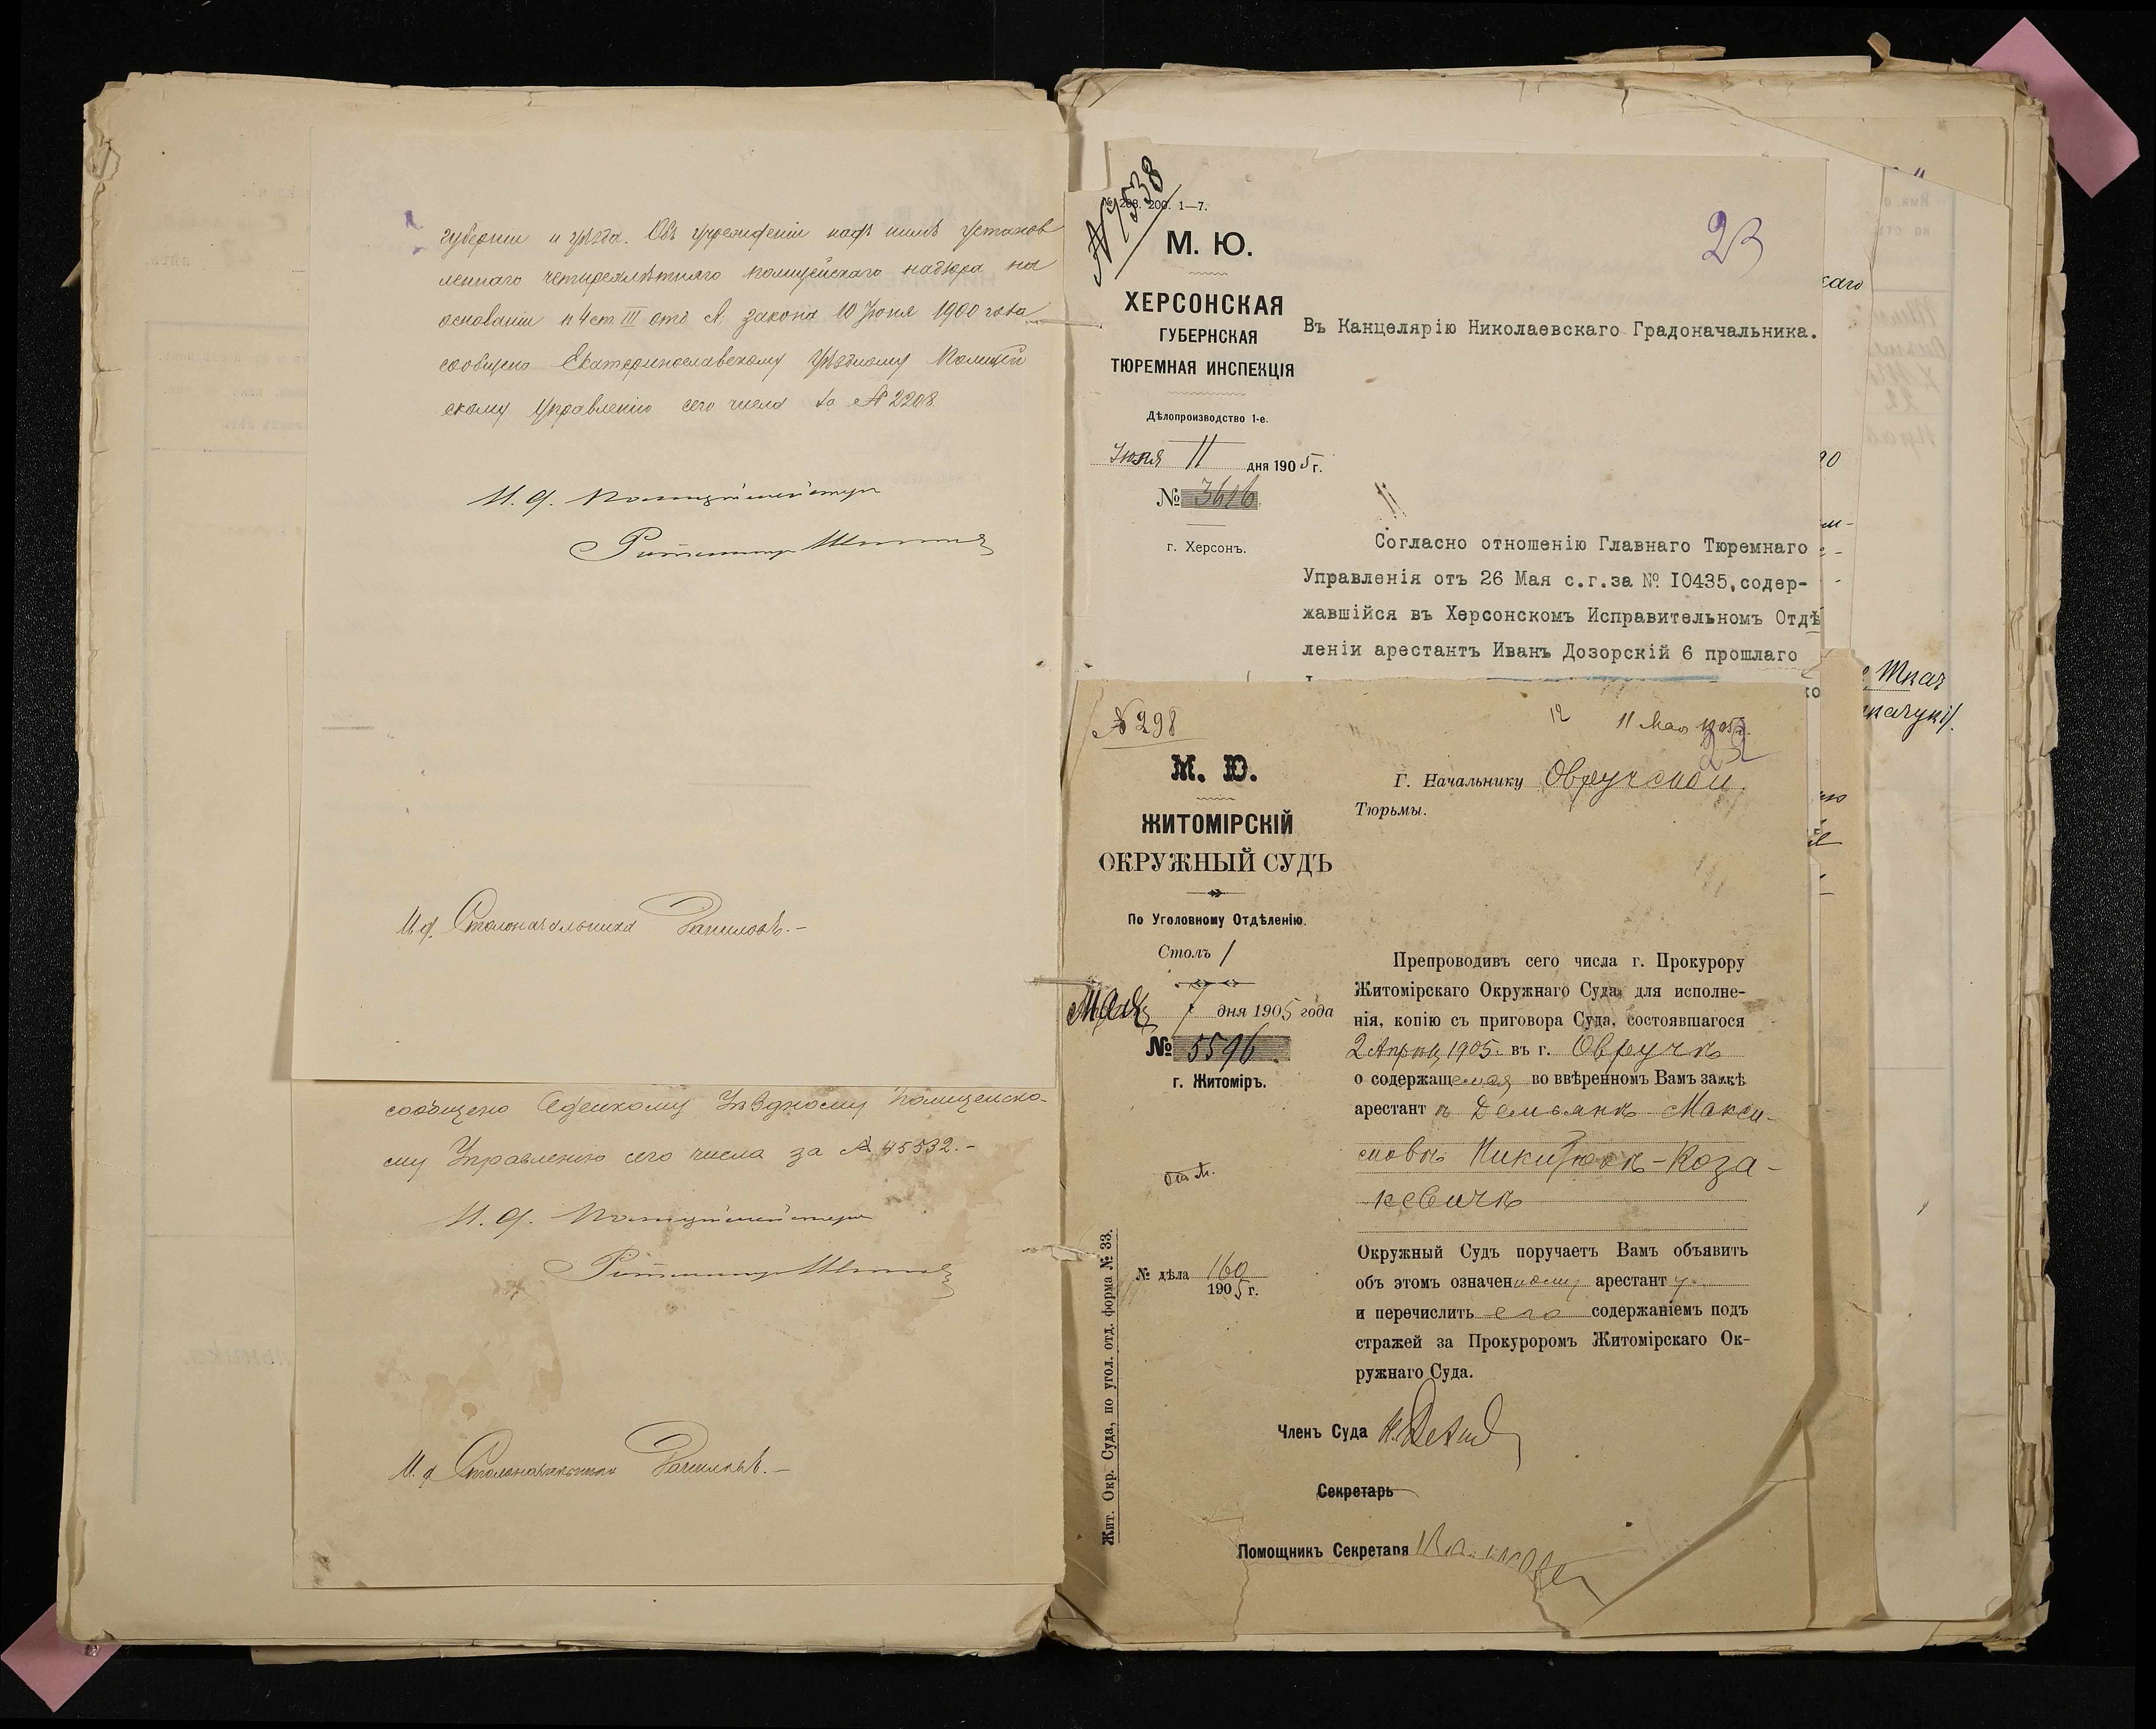 губерніи и уѣзда. Объ учрежденіи надъ нимъ установ
леннаго четырехлѣтняго полицейскаго надзора на
основаніи п 4 ст III отд А, закона 10 Іюня 1900 года
сообщено Екатеринославскому Уѣздному Полицей
скому Управленію сего числа за № 2208.
И. д. Полиціймейстера
Ротмистръ
И. д. Столоначальника Даниловъ.-
сообщено Одесскому Уѣздному Полицейско-
му Управленію сего числа за № 45532.-
И. д. Полиціймейстера
Ротмистръ
И. д. Столоначальника Даниловъ.-
№ 1538
№ 208. 200. 1—7.
23
М. Ю.
ХЕРСОНСКАЯ
ГУБЕРНСКАЯ
ТЮРЕМНАЯ ИНСПЕКЦІЯ
Дѣлопроизводство 1-е.
Іюня 11 дня 1905 г.
№ 3616
г. Херсонъ.
Въ Канцелярію Николаевскаго Градоначальника.
Согласно отношенію Главнаго Тюремнаго
Управленія отъ 26 Мая с.г.за № I0435,содер-
жавшійся въ Херсонскомъ Исправительномъ Отдѣ
леніи арестантъ Иванъ Дозорскій 6 прошлаго
№ 298
12
11 Мая 1905 г.
22
М. Ю.
ЖИТОМІРСКІЙ
ОКРУЖНЫЙ СУДЪ
По Уголовному Отдѣленію.
Столъ 1
Мая 7 дня 1905 года
№ 5596
г. Житоміръ.
№ дѣла 160
1905 г.
Жит. Окр. Суда, по угол. отд. форма № 33.
Г. Начальнику Овручской
Тюрьмы.
Препроводивъ сего числа г. Прокурору
Житомірскаго Окружнаго Суда для исполне-
нія, копію съ приговора Суда, состоявшагося
2 Апрѣля 1905. въ г. Овручѣ
о содержащемся во ввѣренномъ Вамъ замкѣ
арестантѣ Демьянѣ Макси-
мовѣ Никитюкѣ-Коза-
кевичѣ
Окружный Судъ поручаетъ Вамъ объявить
объ этомъ означенному арестанту
и перечислить его содержаніемъ подъ
стражей за Прокуроромъ Житомірскаго Ок-
ружнаго Суда.
Членъ Суда
Секретарь
Помощникъ Секретаря
каго
Ткач